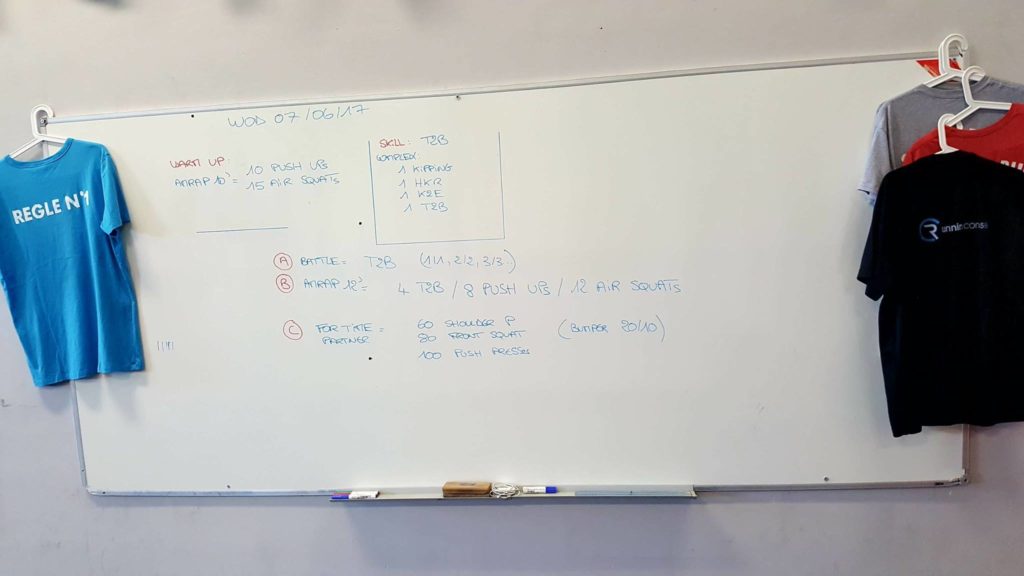 WOD 07/06/17
WARM UP:
AMRAP 10' = 10 PUSH UPS
15 AIR SQUATS
SKILL: T2B
COMPLEX:
1 KIPPING
1 HKR
1 K2E
1 T2B
A BATTLE = T2B (1/1, 2/2, 3/3..)
B AMRAP 12' = 4 T2B / 8 PUSH UPS / 12 AIR SQUATS
C FOR TIME = 60 SHOULDER P (BUMPER 20/10)
PARTNER 80 FRONT SQUAT
100 PUSH PRESSES
REGLE N°1
unnin conse